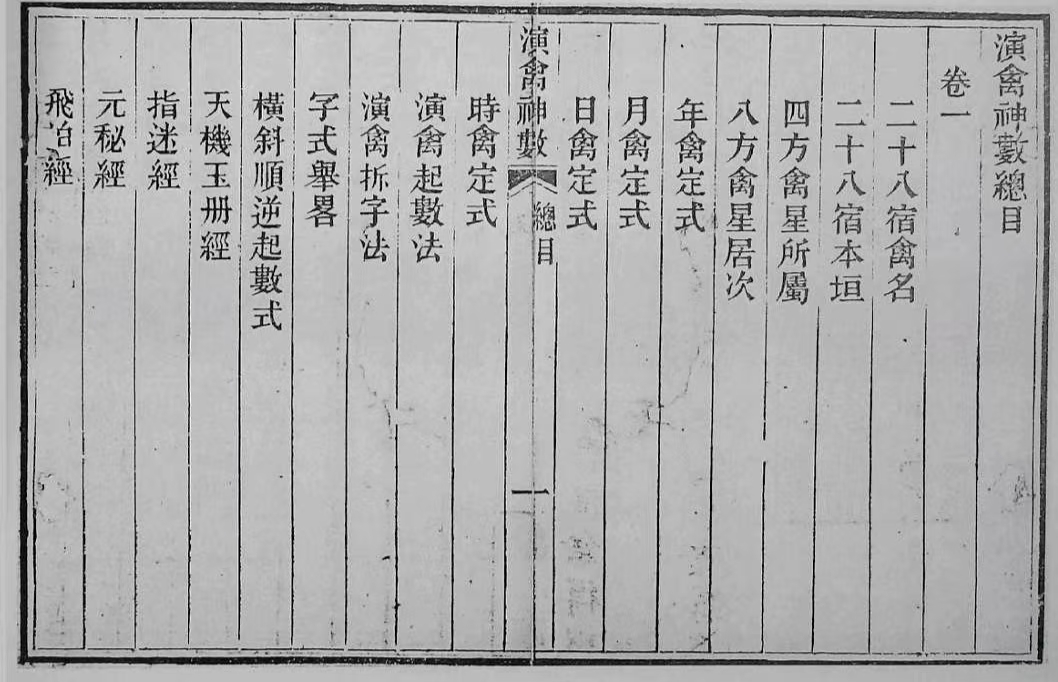 演禽神數總目
卷一
二十八宿禽名
二十八宿本垣
四方禽星所屬
八方禽星居次
年禽定式
月禽定式
日禽定式
演禽神數 總目 一
時禽定式
演禽起數法
演禽拆字法
字式舉畧
橫斜順逆起數式
天機玉册經
指迷經
元秘經
飛冶經